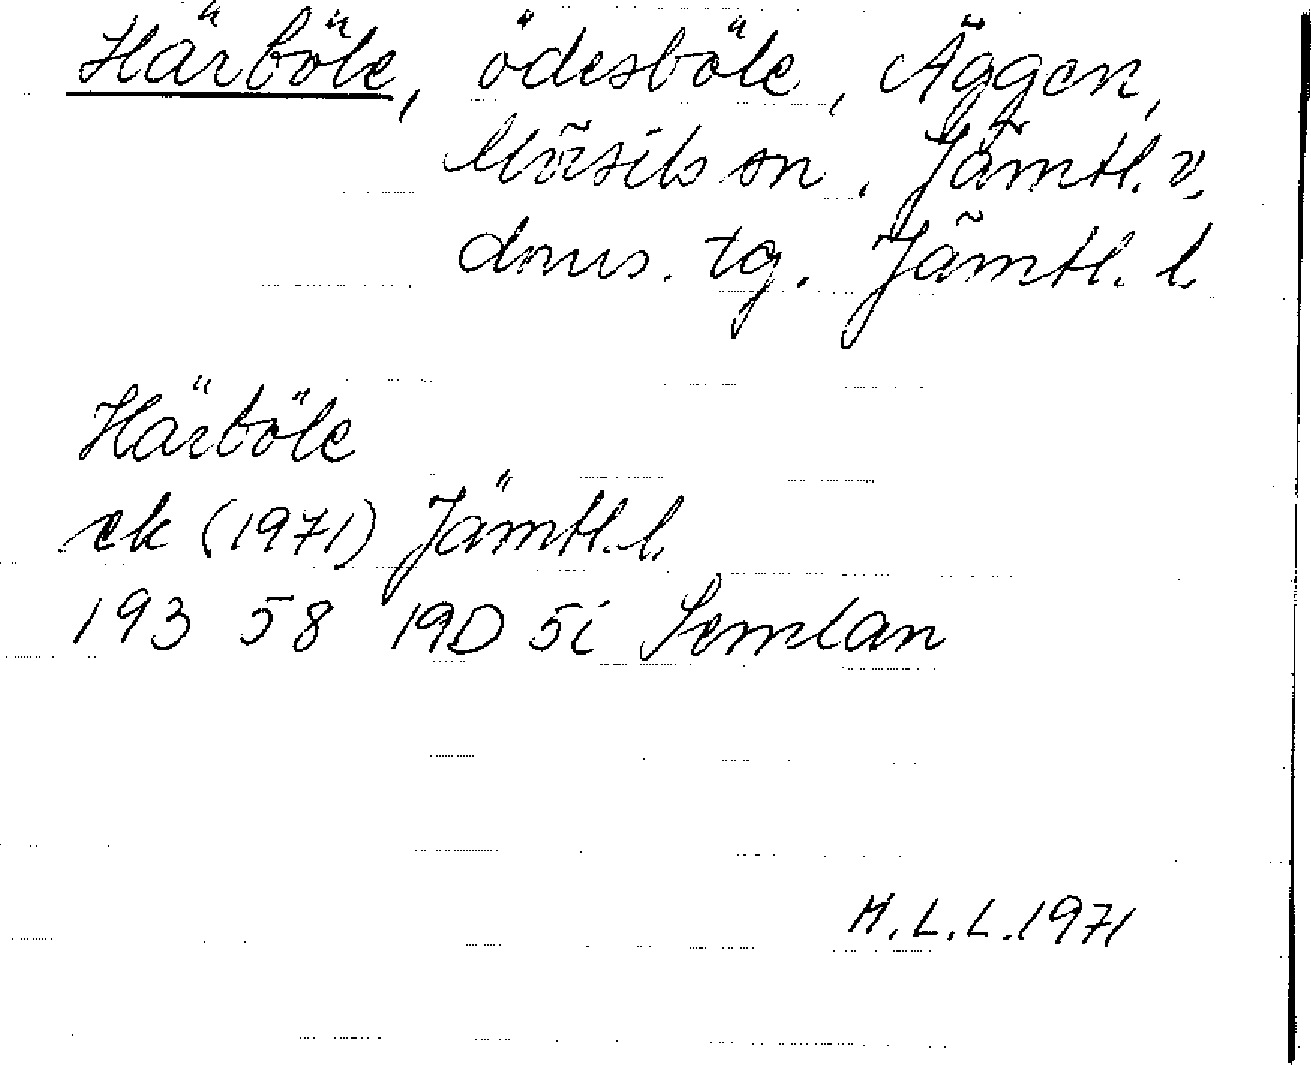 Härböle, ödesböle, Äggen,
Mörsils sn. Jämtl. v.
doms. tg. Jämtl. l.
Härböle
ek (1971) Jämtl. l.
193 58 19D 5i Semlan
H.L.L. 1971